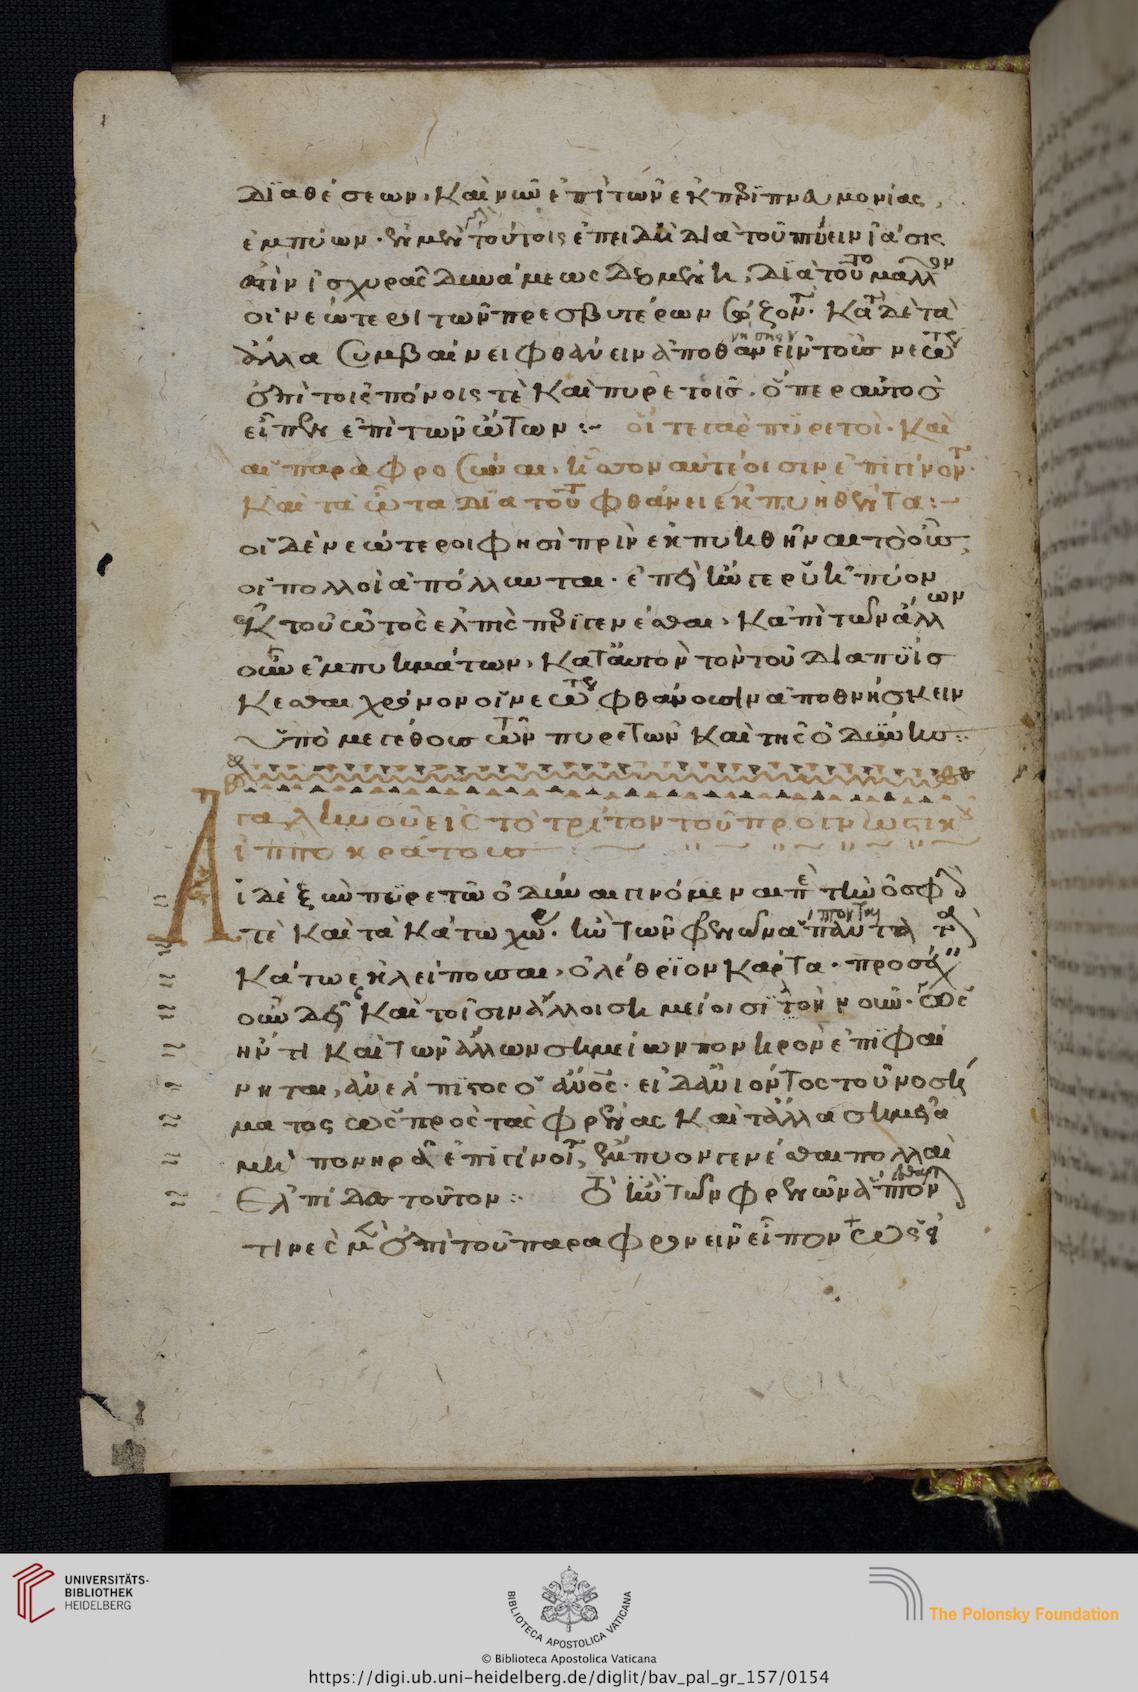 διαθέσεων, καὶ νῦν ἐπὶ τῶν ἐκ περιπνευμονίας
ἐμπύων· ἐν μὲν τούτοις ἐπειδὴ διὰ τοῦ πτύειν ἴασις
ἐστὶν ἰσχυρᾶς δυνάμεως δεομένη, διὰ τοῦτο μᾶλλον
οἱ νεώτεροι τῶν πρεσβυτέρων σώζονται· κατὰ δὲ τὰ
ἄλλα συμβαίνει φθάνειν ἀποθανεῖν τοὺς νεωτέρους
ἐπὶ τοῖς πόνοις τὲ καὶ πυρετοῖς. ὅπερ αὐτὸς
εἶπεν ἐπὶ τῶν ὤτων :~ οἵ τε γὰρ πυρετοὶ· καὶ
αἱ παραφροσύναι, ἧσσον αὐτέοισιν ἐπιγίνονται·
καὶ τὰ ὦτα διὰ τοῦτο φθάνει ἐκπυηθέντα :~
οἱ δὲ νεώτεροι φησὶ πρὶν ἐκπυηθῆναι τὸ οὖς,
οἱ πολλοὶ ἀπόλλυνται· ἐπεὶ ἤν γε ῥυῇ πύον
ἐκ τοῦ ὠτὸς ἐλπὶς περιγενέσθαι, κἀπὶ τῶν ἄλλων
οὖν ἐμπυημάτων, κατ' αὐτὸν τὸν τοῦ διαπυΐσ
κεσθαι χρόνον οἱ νεώτεροι φθάνουσιν ἀποθνήσκειν
ὑπὸ μεγέθους τῶν πυρετῶν καὶ τῆς ὀδύνης :
γαληνοῦ εἰς τὸ τρίτον τοῦ προγνωστικοῦ
ἱπποκράτους
Αἱ δὲ ξὺν πυρετῷ ὀδύναι γινόμεναι περὶ τὴν ὀσφὺν
τὲ καὶ τὰ κάτω χωρία· ἢν τῶν φρενῶν ἅπτωνται τὰ
κάτω ἐκλείπουσαι, ὀλέθριον κάρτα· προσέχειν
οὖν δεῖ καὶ τοῖσιν ἄλλοις σημείοισι τὸν νοῦν· ὡς
ἤν τι καὶ τῶν ἄλλων σημείων πονηρὸν ἐπιφαί
νηται, ἀνέλπιστος ὁ ἄνθρωπος· εἰ δ' ἀνιόντος τοῦ νοσή
ματος ὡς πρὸς τὰς φρένας καὶ τἆλλα σημεῖα
μὴ πονηρὰ ἐπιγίνοιτο, ἔμπυον γενέσθαι πολλαὶ
ἐλπίδες τοῦτον : Τὸ ἢν τῶν φρενῶν ἅπτονται
τινὲς μὲν ἐπὶ τοῦ παραφρονεῖν εἶπον
UNIVERSITÄTS-
BIBLIOTHEK
HEIDELBERG
BIBLIOTECA APOSTOLICA VATICANA
The Polonsky Foundation
© Biblioteca Apostolica Vaticana
https://digi.ub.uni-heidelberg.de/diglit/bav_pal_gr_157/0154